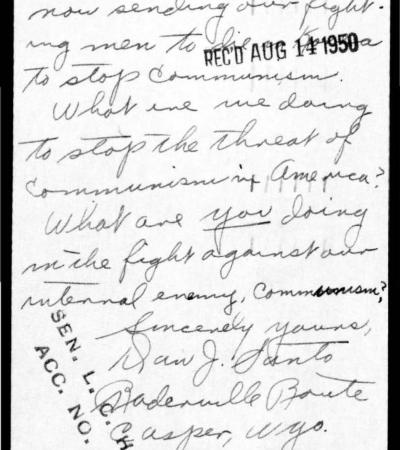 now sending our fight-
ing men to die in Korea
REC'D AUG 14 1950
to stop Communism.
What are we doing
to stop the threat of
Communism in America?
What are you doing
in the fight against our
internal enemy, Communism?
Sincerely yours,
Dan J. Santo
Route
Casper, Wyo.
SEN. L. C. H
ACC. NO.